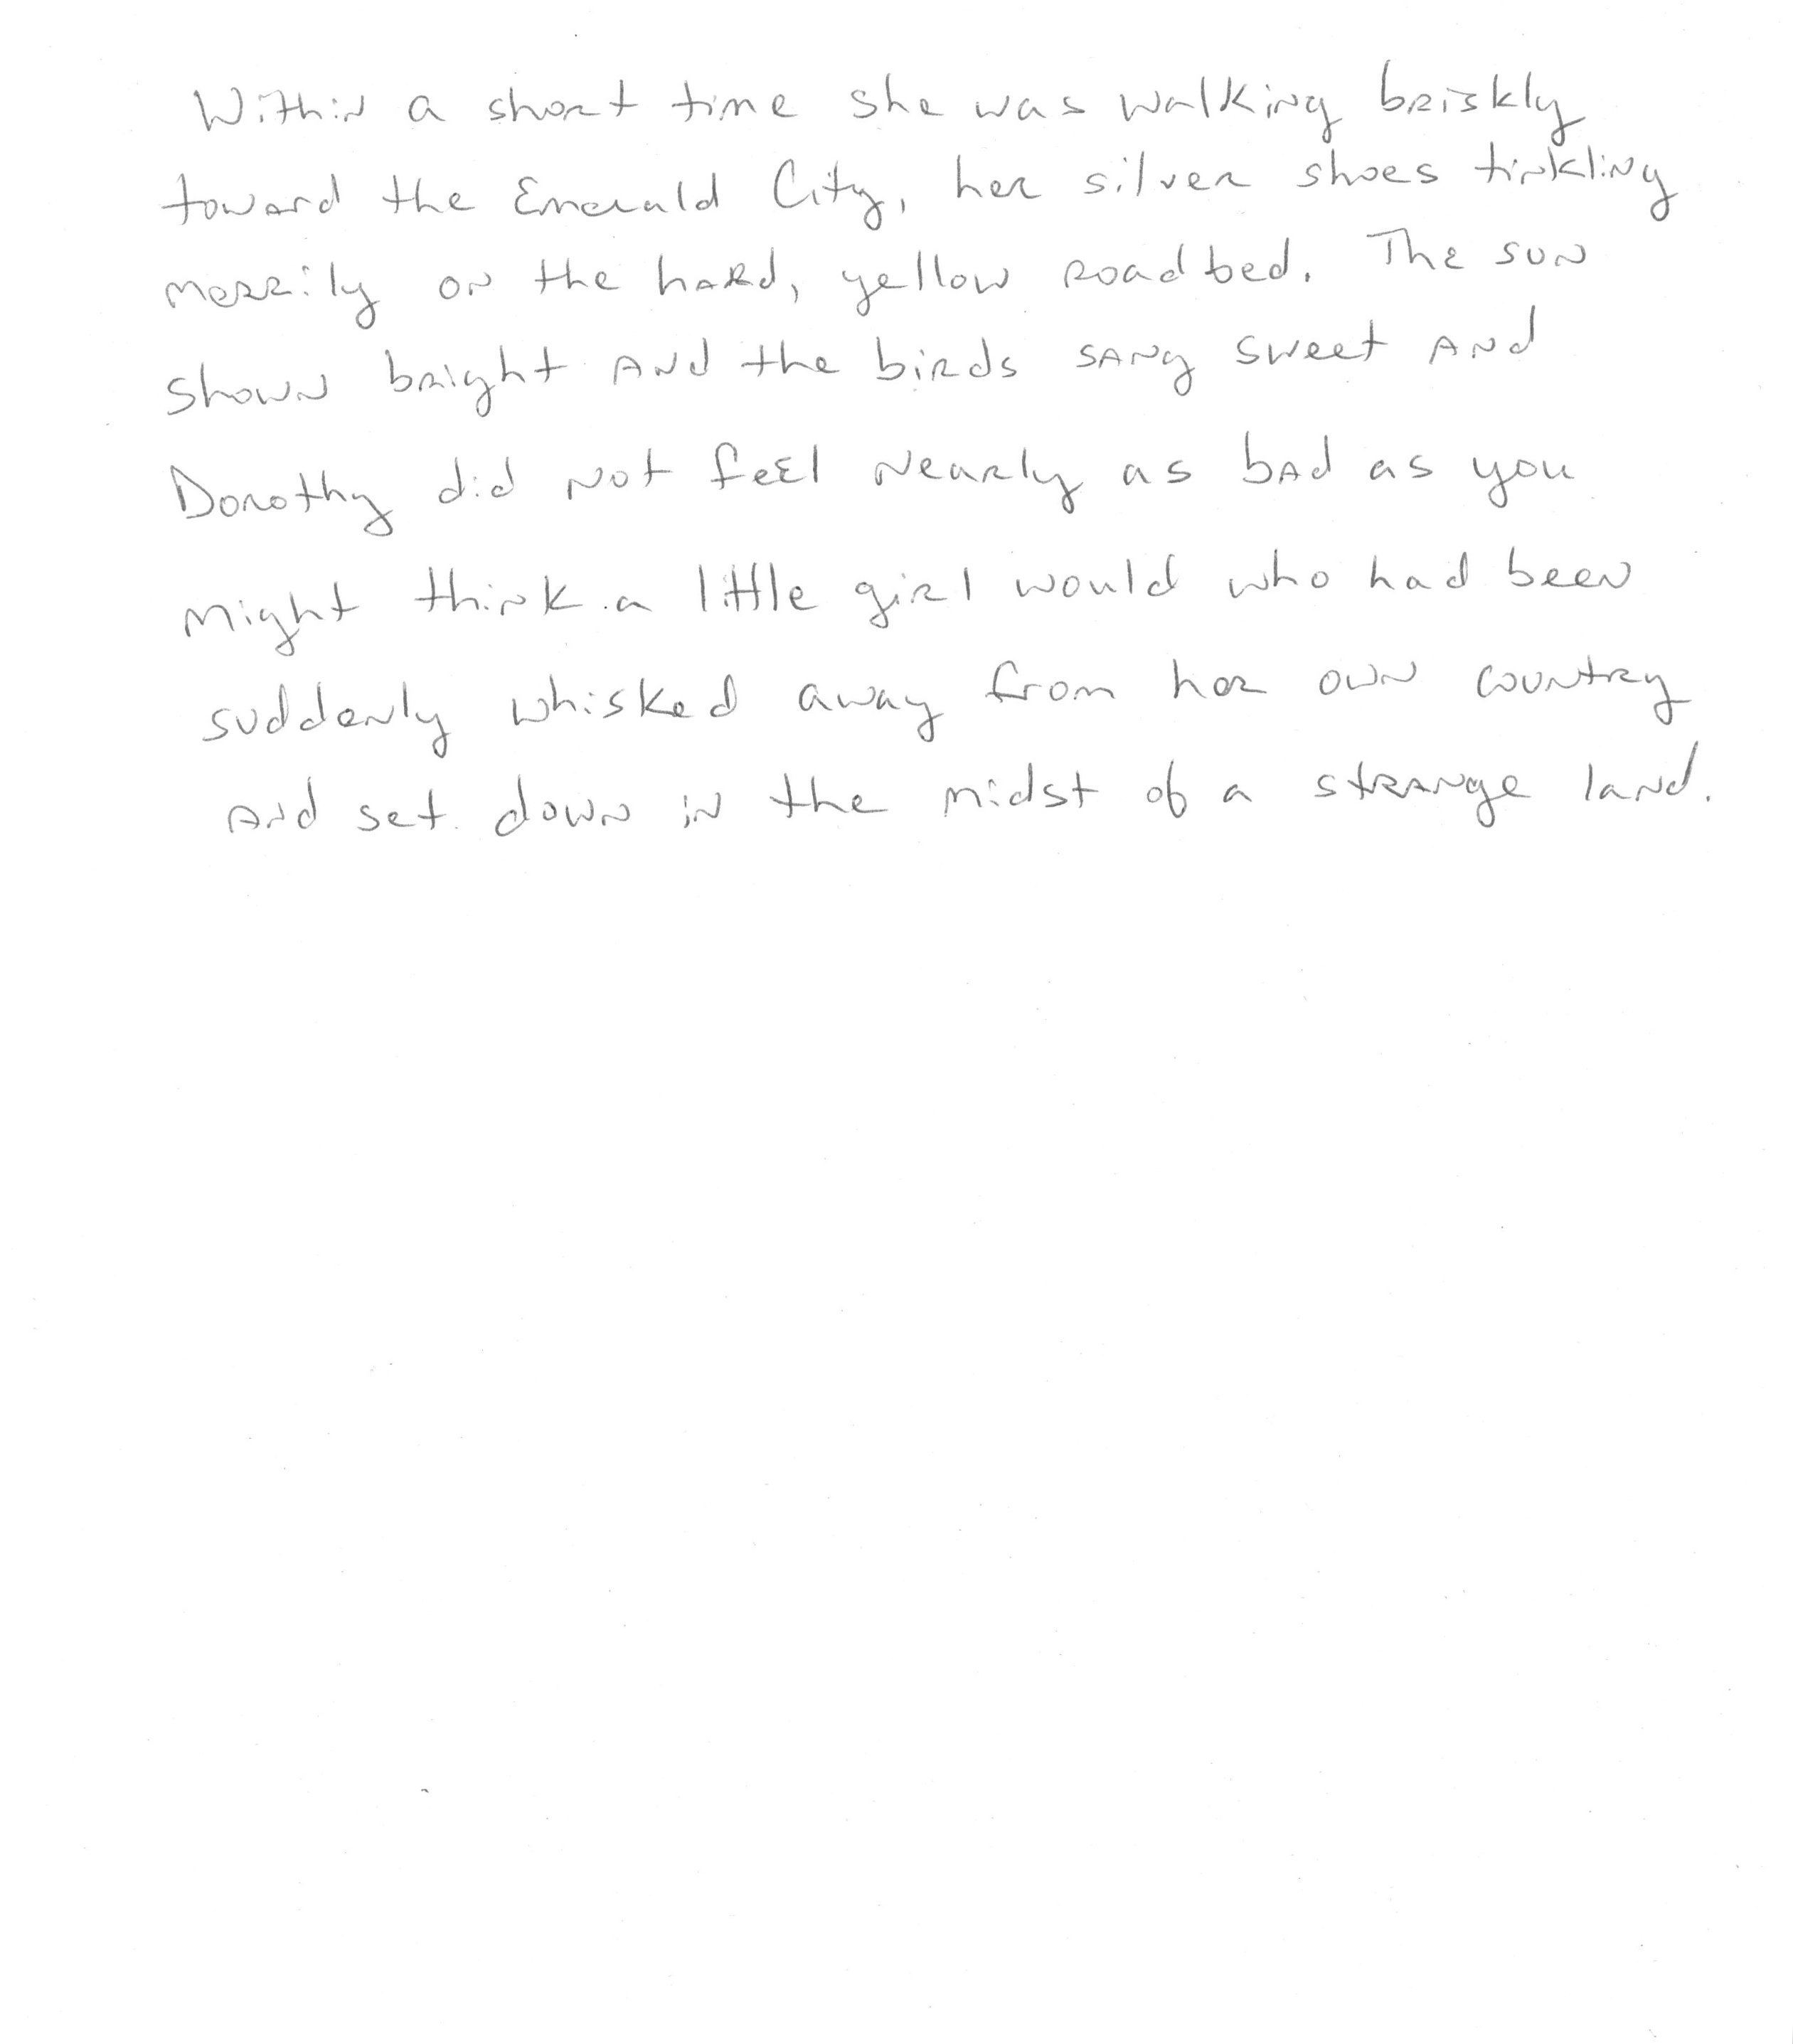 Within a short time she was walking briskly
toward the Emerald City, her silver shoes tinkling
merrily on the hard, yellow roadbed. The sun
shown bright and the birds sang sweet and
Dorothy did not feel nearly as bad as you
might think a little girl would who had been
suddenly whisked away from her own country
and set down in the midst of a strange land.